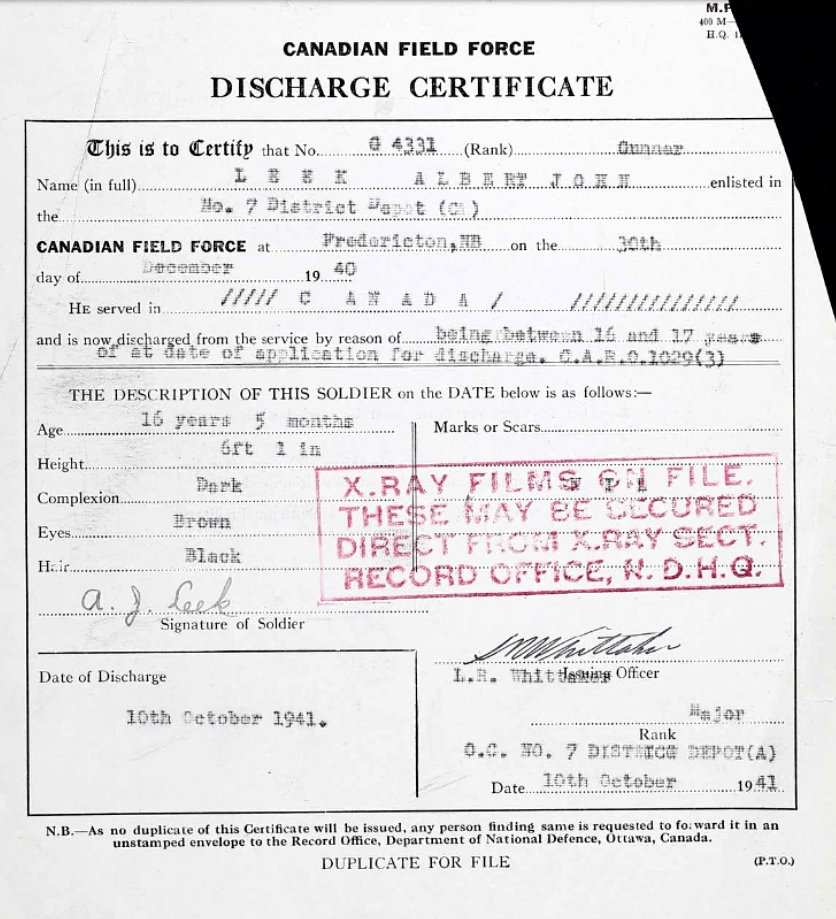 M.F
400 M—
H.Q. 1
CANADIAN FIELD FORCE
DISCHARGE CERTIFICATE
This is to Certify that No. G 4331 (Rank) Gunner
Name (in full) L E E K A L B E R T J O H N enlisted in
the No. 7 District Depot (CA)
CANADIAN FIELD FORCE at Fredericton,NB on the 30th
day of December 19 40
HE served in ///// C A N A D A / //////////////
and is now discharged from the service by reason of being between 16 and 17 years
of at date of application for discharge. C.A.R.O.1029(3)
THE DESCRIPTION OF THIS SOLDIER on the DATE below is as follows:—
Age 16 years 5 months
Marks or Scars
Height 6ft 1 in
Complexion Dark
N I L
Eyes Brown
Hair Black
X.RAY FILMS ON FILE.
THESE MAY BE SECURED
DIRECT FROM X.RAY SECT.
RECORD OFFICE, N.D.H.Q.
A. J. Leek
Signature of Soldier
Date of Discharge
10th October 1941.
L.R. Whittaker Issuing Officer
Major
Rank
O.C. NO. 7 DISTRICT DEPOT(A)
Date 10th October 19 41
N.B.—As no duplicate of this Certificate will be issued, any person finding same is requested to forward it in an
unstamped envelope to the Record Office, Department of National Defence, Ottawa, Canada.
DUPLICATE FOR FILE
(P.T.O.)